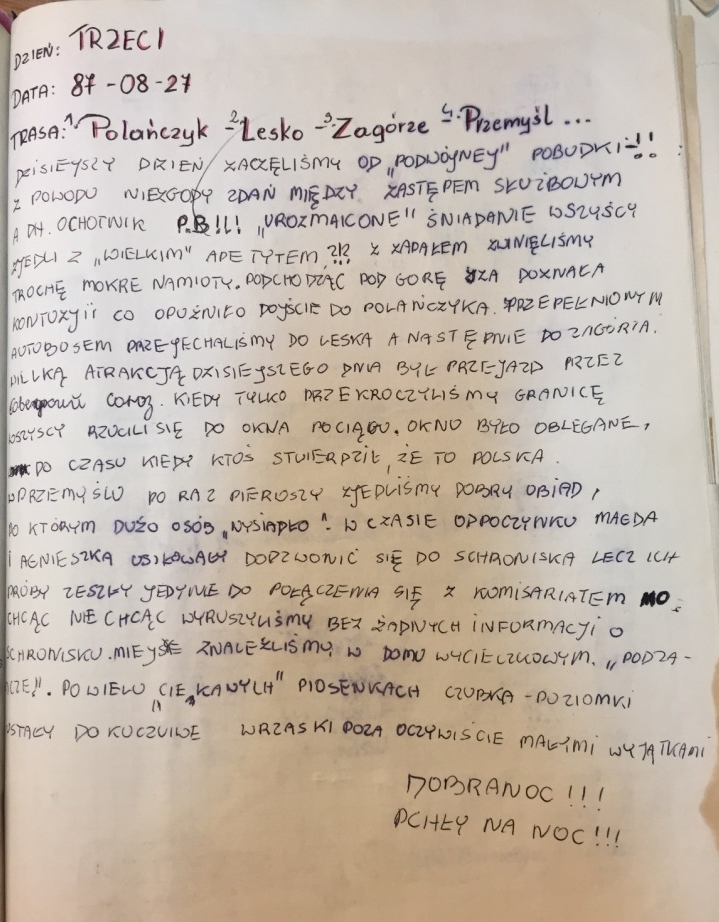 DZIEŃ: TRZECI
DATA: 87-08-27
TRASA: 1. Polańczyk - 2. Lesko - 3. Zagórze - 4. Przemyśl ...
DZISIEYSZY DZIEŃ ZACZĘLIŚMY OD „PODWÓYNEY" POBUDKI-!!
Z POWODU NIEZGODY ZDAŃ MIĘDZY ZASTĘPEM SŁUŻBOWYM
A DH. OCHOTNIK P.B!!! „UROZMAICONE" ŚNIADANIE WSZYŚCY
ZJEDLI Z „WIELKIM" APETYTEM ?!? Z ZAPAŁEM ZWINĘLIŚMY
TROCHĘ MOKRE NAMIOTY. PODCHODZĄC POD GÓRĘ IZA DOZNAŁA
KONTUZJI CO OPUŹNIŁO DOJŚCIE DO POLAŃCZYKA. PRZEPEŁNIONYM
AUTOBUSEM PRZEJECHALIŚMY DO LESKA A NASTĘPNIE DO ZAGÓRZA.
WILLKĄ ATRAKCJĄ DZISIEJSZEGO DNIA BYŁ PRZEJAZD PRZEZ
KIEDY TYLKO PRZEKROCZYLIŚMY GRANICĘ
WSZYSCY RZUCILI SIĘ DO OKNA POCIĄGU. OKNO BYŁO OBLEGANE,
DO CZASU KIEDY KTOŚ STWIERDZIŁ, ŻE TO POLSKA.
W PRZEMYŚLU PO RAZ PIERWSZY ZJEDLIŚMY DOBRY OBIAD,
PO KTÓRYM DUŻO OSÓB „WYSIADŁO". W CZASIE ODPOCZYNKU MAGDA
I AGNIESZKA USIŁOWAŁY DODZWONIĆ SIĘ DO SCHRONISKA LECZ ICH
PRÓBY ZESZŁY JEDYNIE DO POŁĄCZENIA SIĘ Z KOMISARIATEM MO.
CHCĄC NIE CHCĄC WYRUSZYLIŚMY BEZ ŻADNYCH INFORMACJI O
SCHRONISKU. MIEJSCE ZNALEŹLIŚMY W DOMU WYCIECZKOWYM „PODZA-
MCZE". PO WIELU „CIEKAWYCH" PIOSENKACH CZUBKA-POZIOMKI
USTAŁY DOKUCZLIWE WRZASKI POZA OCZYWIŚCIE MAŁYMI WYJĄTKAMI
DOBRANOC!!!
PCHŁY NA NOC!!!